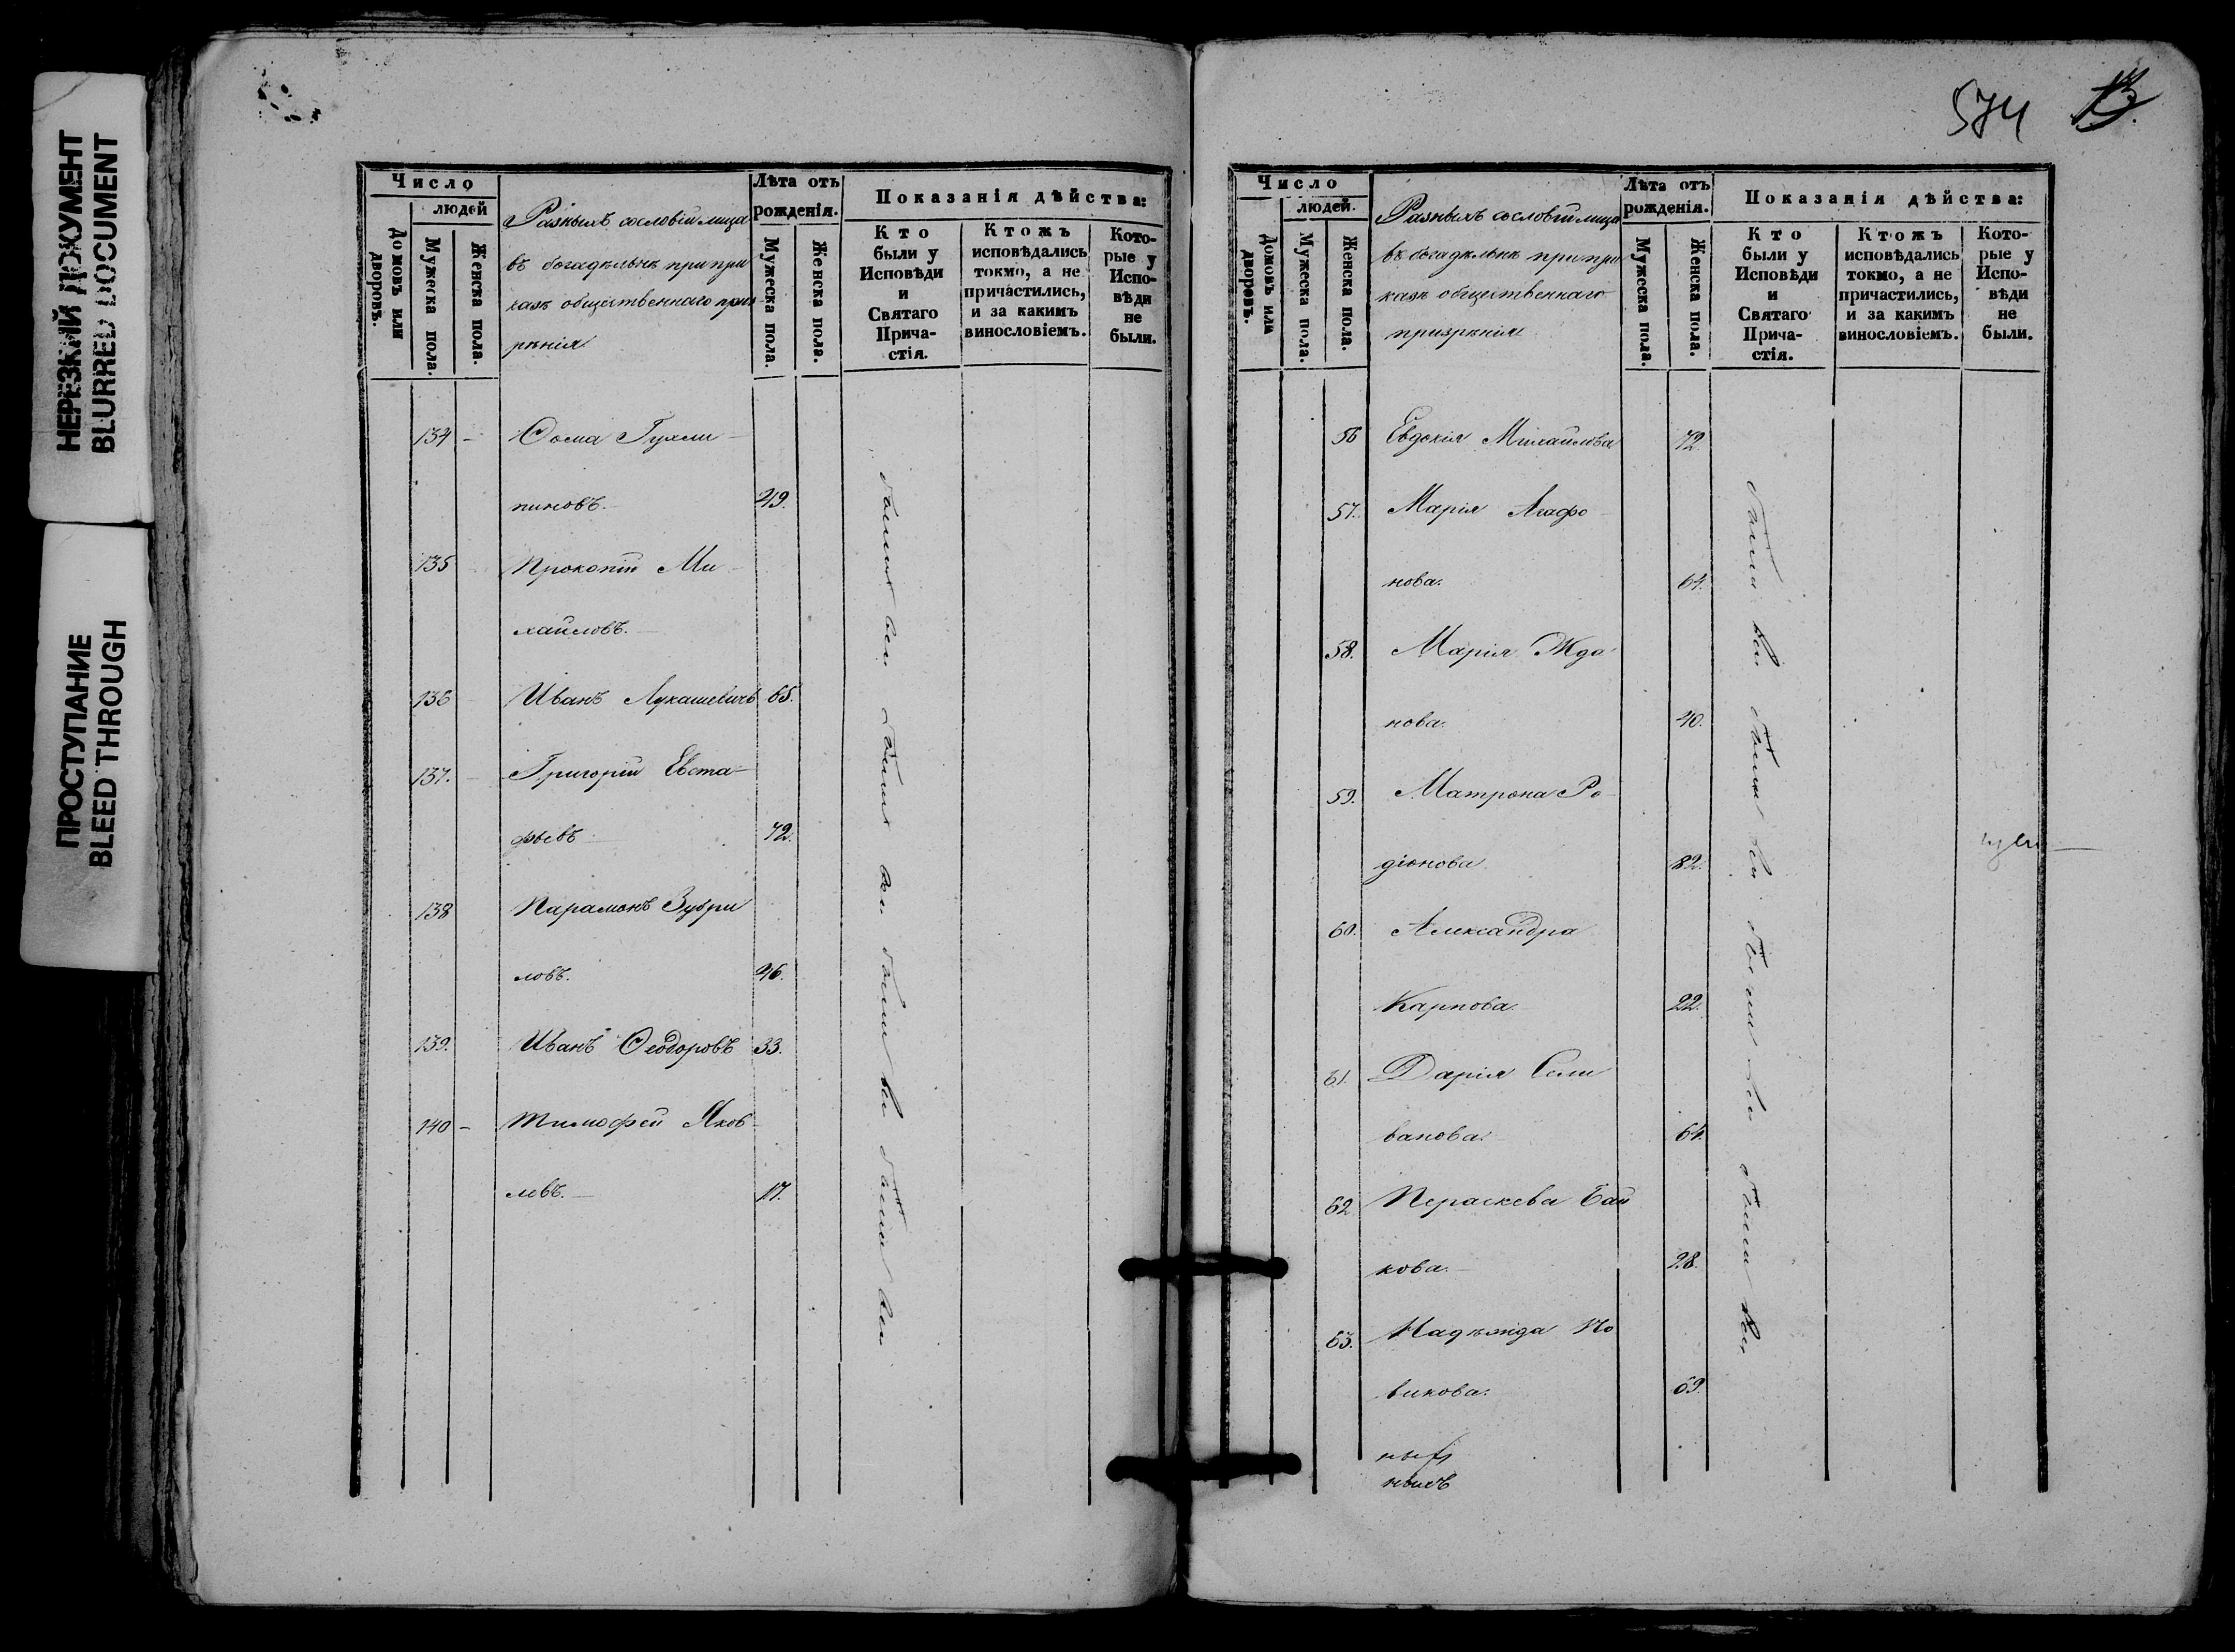 НЕРЕЗКИЙ ДОКУМЕНТ
BLURRED DOCUMENT
ПРОСТУПАНИЕ
BLEED THROUGH
Число
людей
Домовъ или дворовъ.
Мужеска пола.
Женска пола.
Разныхъ сословій лица
въ богадѣльнѣ при при
казѣ общественнаго приз
рѣнія
Лѣта отъ
рожденія.
Мужеска пола.
Женска пола.
Показанія дѣйства:
Кто
были у
Исповѣди
и
Святаго
Прича-
стія.
Ктожъ
исповѣдались
токмо, а не
причастились,
и за какимъ
винословіемъ.
Кото-
рые у
Испо-
вѣди
не
были.
134 - Ѳома
пиновъ. 49.
135 Прокопій Ми
хайловъ.
136 Иванъ Лукашевичъ 65.
137. Григорій Евста-
фьевъ 72.
138 Парамонъ Зубри
ловъ. 46.
139. Иванъ Ѳеодоровъ 33.
140 - Тимофей Яков-
левъ. 17.
были вси были вси были вси были вси
574
13.
Число
людей.
Домовъ или дворовъ.
Мужеска пола.
Женска пола.
Разныхъ сословій лица
въ богадѣльнѣ при при
казѣ общественнаго
призрѣнія
Лѣта отъ
рожденія.
Мужеска пола.
Женска пола.
Показанія дѣйства:
Кто
были у
Исповѣди
и
Святаго
Прича-
стія.
Ктожъ
исповѣдались
токмо, а не
причастились,
и за какимъ
винословіемъ.
Кото-
рые у
Испо-
вѣди
не
были.
56 Евдокія Михайлова 72.
57. Марія Агафо
нова. 64.
58. Марія Жда
нова. 40.
59. Матрона Ро
діонова 82.
60. Александра
Карпова. 22.
61. Дарія Сели
ванова. 64.
62 Параскева Бай
кова. 28.
63. Надежда Но
викова. 69.
ныхъ
были вси были вси были вси были вси